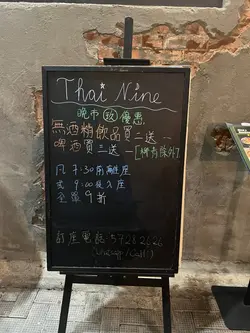 Thai Nine
晚市 致 優惠
無酒精飲品買二送一
啤酒買三送一[樽有除外]
凡 7:30前離座
或 9:00後入座
全單9折
訂座電話 5728 2626
(Whatsapp/Call)